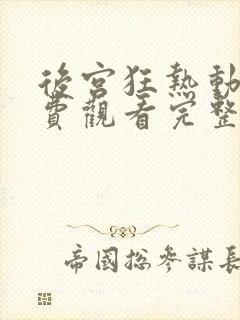 後宮狂熱動
費觀看完整
帝國總參謀長